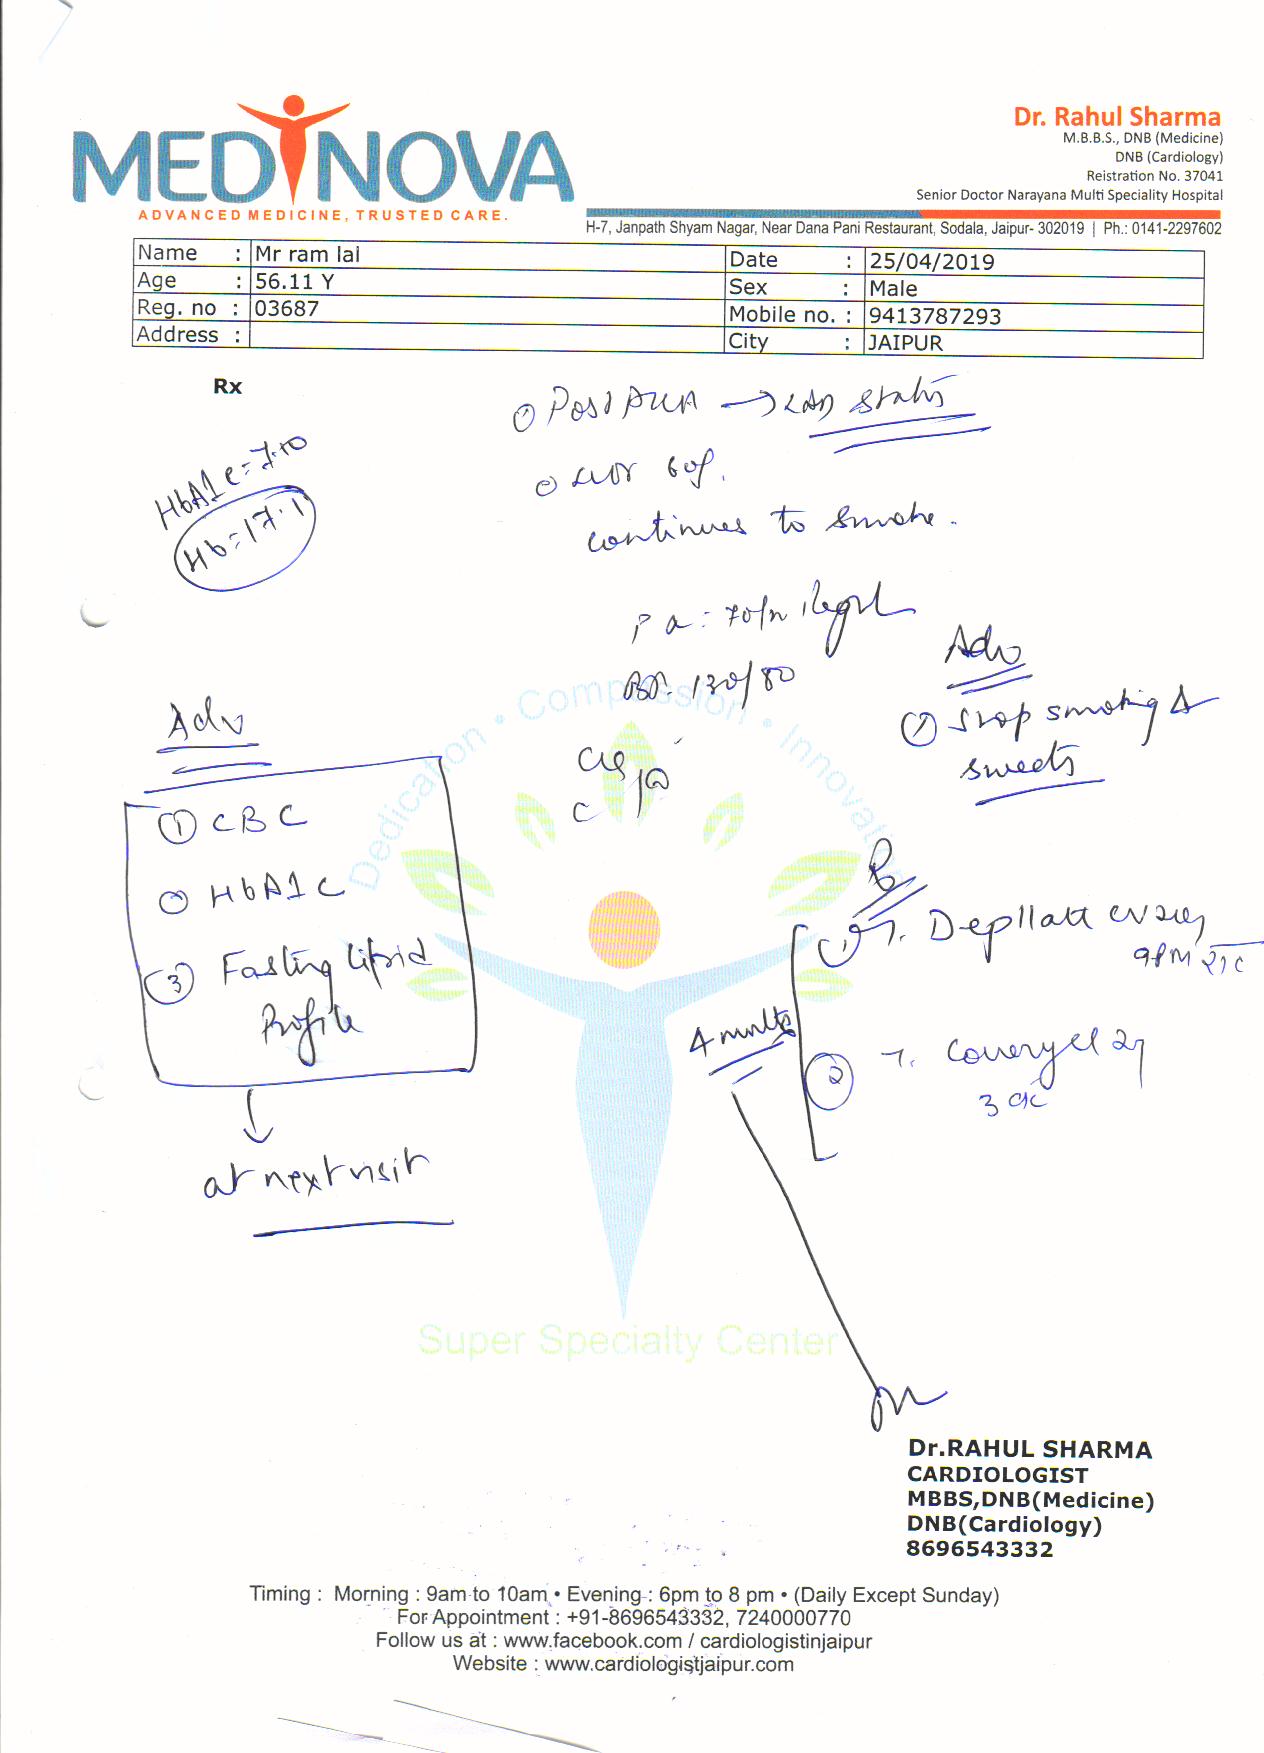 MEDINOVA
ADVANCED MEDICINE, TRUSTED CARE.
Dr. Rahul Sharma
M.B.B.S., DNB (Medicine)
DNB (Cardiology)
Reistration No. 37041
Senior Doctor Narayana Multi Speciality Hospital
H-7, Janpath Shyam Nagar, Near Dana Pani Restaurant, Sodala, Jaipur- 302019 | Ph.: 0141-2297602
Name : Mr ram lal
Age : 56.11 Y
Reg. no : 03687
Address :
Date : 25/04/2019
Sex : Male
Mobile no. : 9413787293
City : JAIPUR
Rx
HbA1c = 7.10
Hb = 17.1
① Post → LAD
continues to smoke.
BP. 130/80
Adv
① CBC
② HbA1C
③ Fasting Lipid
Profile
at next visit
Adv
① Stop smoking &
sweets
① T. 9PM
② T.
Dedication • Compassion • Innovation
Super Specialty Center
Dr.RAHUL SHARMA
CARDIOLOGIST
MBBS,DNB(Medicine)
DNB(Cardiology)
8696543332
Timing : Morning : 9am to 10am • Evening : 6pm to 8 pm • (Daily Except Sunday)
For Appointment : +91-8696543332, 7240000770
Follow us at : www.facebook.com / cardiologistinjaipur
Website : www.cardiologistjaipur.com